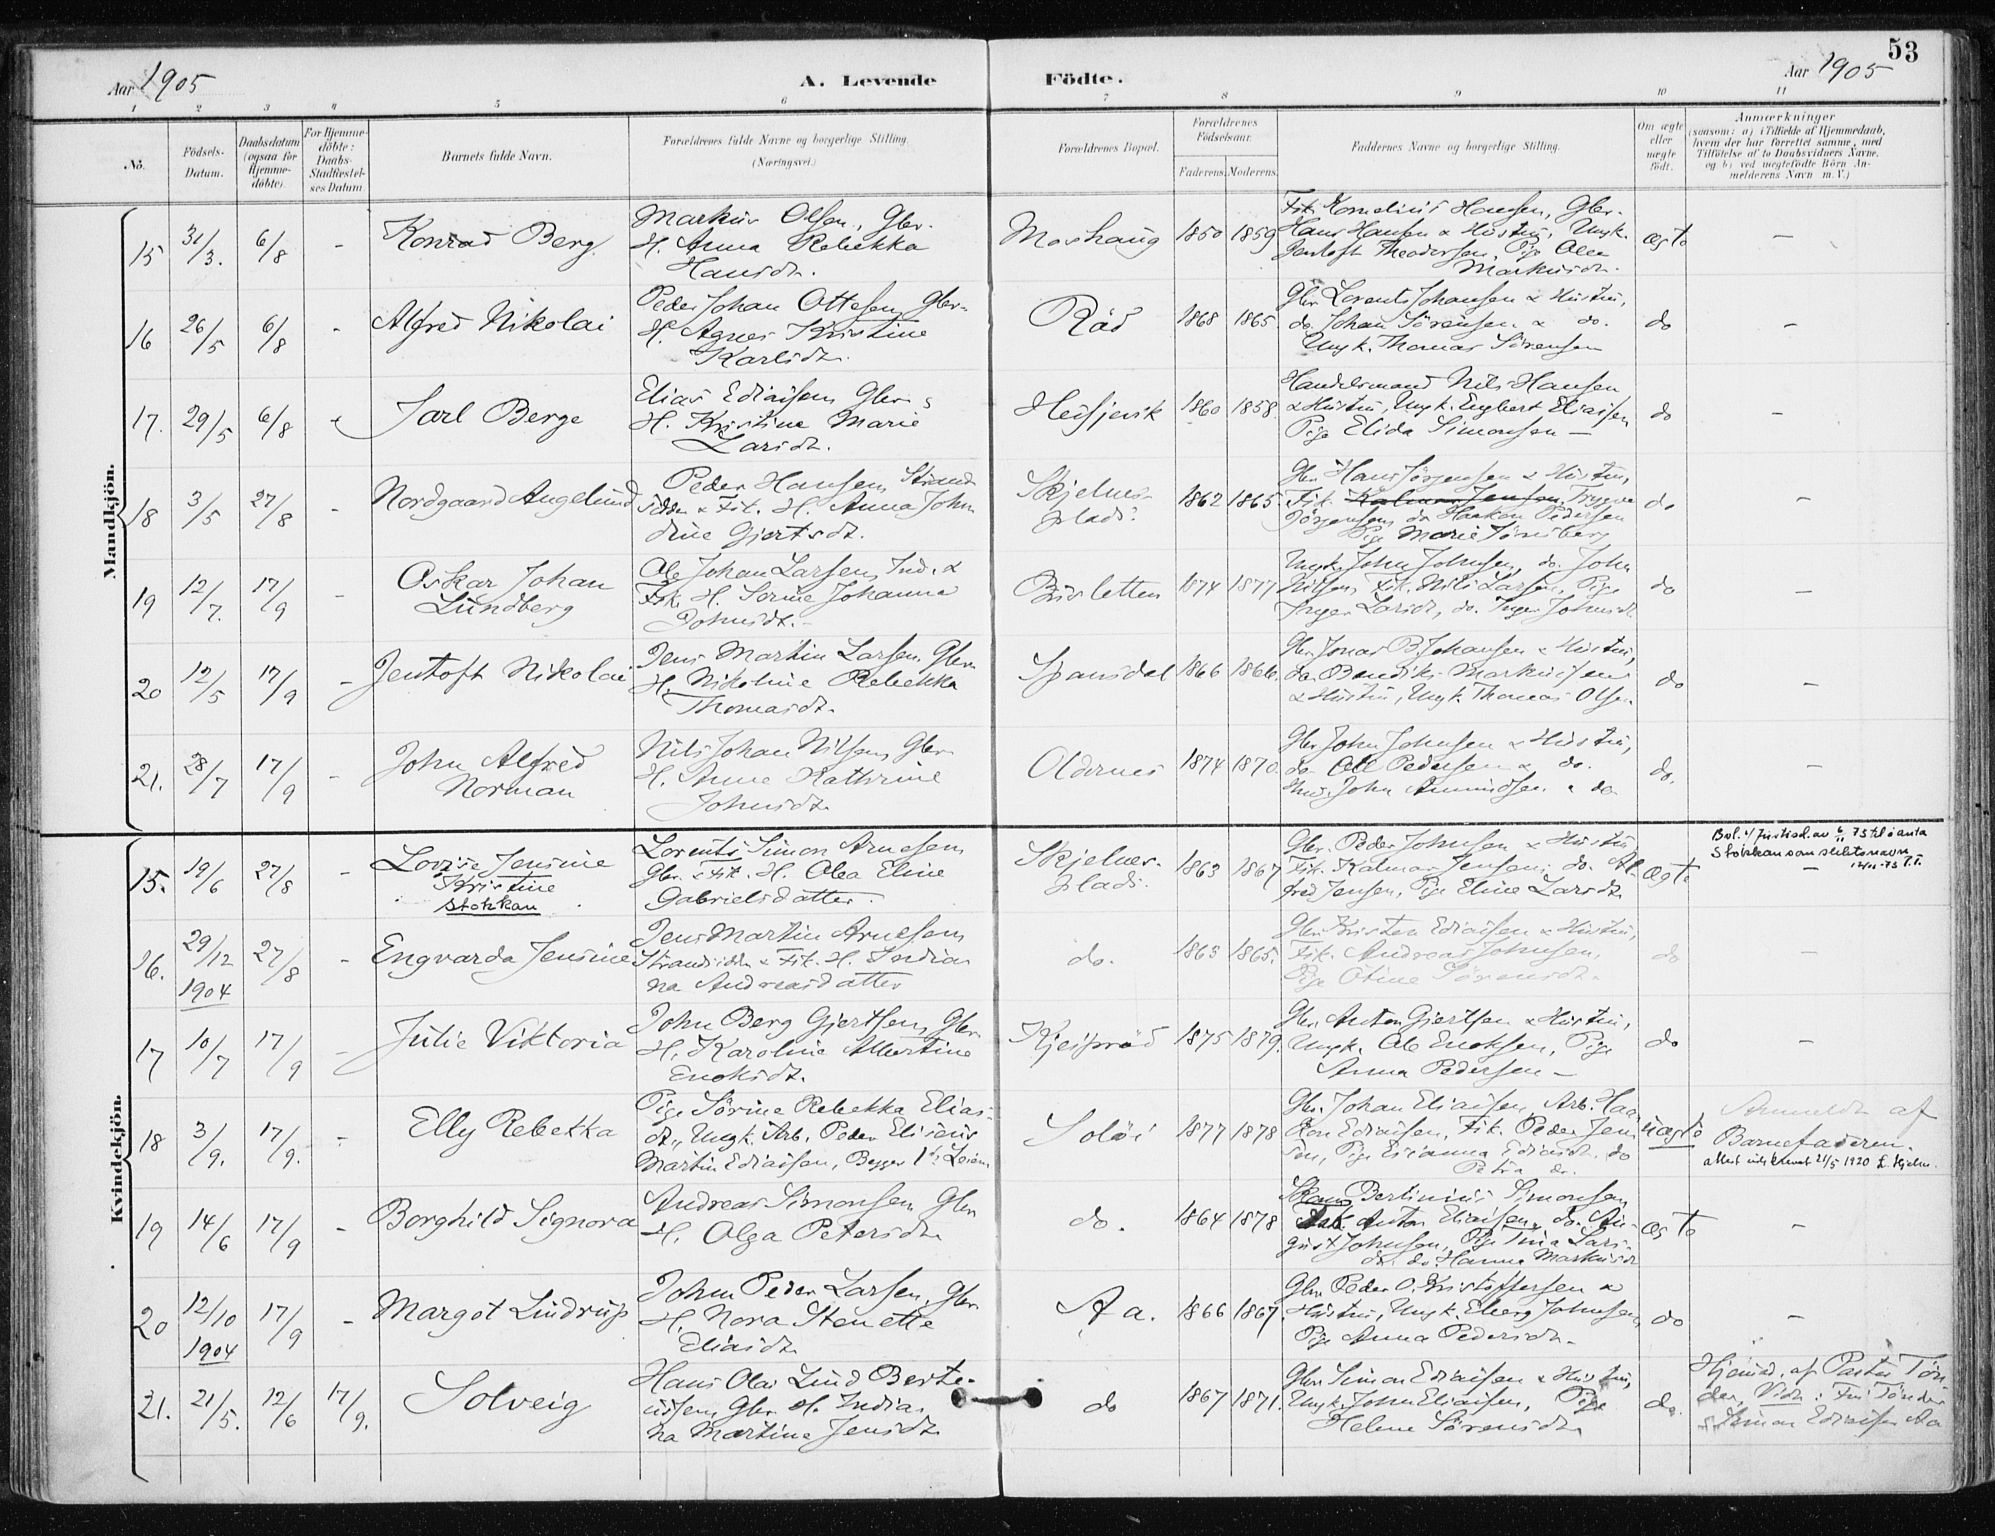 53
Aar 1905
A. Levende Födte.
Aar 1905
1 2 3 4 5 6 7 8 9 10 11
No.
Födsels-Datum.
Daabsdatum (ogsaa for Hjemme-döbte)
For Hjemme-döbte: Daabs-Stadfæstel-ses Datum
Barnets fulde Navn.
Forældrenes fulde Navne og borgerlige Stilling.
(Næringsvei.)
Forældrenes Bopæl.
Forældrenes Födselsaar.
Faderens. Moderens.
Faddernes Navne og borgerlige Stilling.
Om ægte eller uægte födt.
Anmærkninger
(saasom: a) i Tilfælde af Hjemmedaab,
hvem der har forrettet samme, med
Tilföielse af to Daabsvidners Navne,
og b) ved uægtefödte Börn An-
melderens Navn m. V.)
Mandkjön.
15 31/3. 6/8 - Konrad Berg.
Markus Olsen, Gbr.
H. Anna Rebekka
Hansdt.
1850 1859
Fisk. Kornelius Hansen, Gbr.
Hans Hansen & Hustru, Ungk.
Jentoft Theodorsen, Pige Olea
Markusdt.
ægte -
16 26/5 6/8 - Alfred Nikolai
Peder Johan Ottesen, Gbr.
H. Agnes Kristine
Karlsdt.
Röd 1868 1865.
Gbr. Lorents Johansen & Hustru,
do. Johan Sörensen & do.
Ungk. Thomas Sörensen
do -
17. 29/5 6/8 - Jarl Berge
Elias Ediassen Gbr.
H. Kristine Marie
Larsdt.
1860 1858
Handelsmand Nils Hansen
& Hustru, Ungk. Engbert Eliassen
Pige Elida Simonsen -
do -
18 3/5 27/8 - Nordgaard Angelund
Peder Hansen, Strand
sidder & Fisk. H. Anna John
dine Gjertsdt.
Skjelnes
plads. 1862 1865.
Gbr. Hans Jörgensen & Hustru,
Fisk. Kalmar Jensen, Tryggve
Jörgensen, do Haakon Pedersen
Pige Marie Tönsberg
do -
19 12/7. 17/9 - Oskar Johan
Lundberg
Ole Johan Larsen, Ind. &
Fisk. H. Sorine Johanna
Johnsdt. -
1874 1877
Ungk. John Johnsen, do. John
Nilsen, Fisk. Nils Larsen, Pige
Inger Larsdt, do. Inger Johnsdt
do -
20 12/5 17/9 - Jentoft Nikolai
Jens Martin Larsen, Gbr.
H. Nikoline Rebekka
Thomasdt.
Spansdal 1866 1866.
Gbr. Jonas B. Johansen & Hustru,
do. Bendiks Markussen
& Hustru, Ungk. Thomas Olsen
do -
21. 28/7 17/9 - John Alfred
Norman
Nils Johan Nilsen, Gbr.
H. Anne Kathrine
Johnsdt.
Oldernes 1874 1870.
Gbr. John Johnsen & Hustru,
do Ole Pedersen & do.
John Amundsen & do
do. -
Kvindekjön.
15. 19/6 27/8 - Lovise Jensine
Kristine
Stokkan
Lorents Simon Arnesen
Gbr. & Fisk. H. Olea Eline
Gabrielsdatter.
Skjelnes-
plads. 1863 1867
Gbr. Peder Johnsen & Hustru
Fisk. Kalmar Jensen, do. Al-
fred Jensen, Pige Eline Larsdt
ægte -
Bev. v/ Justisd. av 73 til å anta
Stokkan som slektsnavn
12/11-73
16. 29/12 1904 27/8 - Engvarda Jensine
Jens Martin Arnesen
Strandsidder & Fisk. H. India
na Andreasdatter
do. 1863 1865.
Gbr. Kristen Ediassen & Hustru,
Fisk. Andreas Johnsen,
Pige Otine Sörensdt.
do -
17 10/7 17/9 - Julie Viktoria
John Berg Gjertsen, Gbr.
H. Karoline Albertine
Enoksdt.
1875 1879.
Gbr. Anton Gjertsen & Hustru,
Ungk. Ole Enoksen, Pige
Anna Pedersen -
do -
18 3/9. 17/9. - Elly Rebekka
Pige Sörine Rebekka Elias-
dt., Ungk. Arb. Peder Eliseus
Martin Ediassen, Begges 1ste
1877 1878
Gbr. Johan Eliassen, Arb. Haa
kon Ediassen, Fisk. Peder Jen
sen, Pige Edianna Ediasdt. do
Petra do.
uægte
Anmeldt af
Barnefaderen.
attest utskrevet 21/5 1920
19 14/6 17/9 - Borghild Signora
Andreas Simonsen, Gbr.
H. Olga Petersdt
do. 1864 1878
Bertinius Simonsen
Fisk. Anton Eliassen, do. Au-
gust Johnsen, Pige Tina Lars-
dt. do. Hanna Markusdt
ægte -
20 12/10 1904 17/9 - Margot Lindrup
Johan Peder Larsen, Gbr.
H. Nora Stenette
Eliasdt
Aa. 1866 1867.
Gbr. Peder O. Kristoffersen &
Hustru, Ungk. Johnsen,
Pige Anna Pedersdt.
do -
21. 21/5. 12/6 17/9. Solveig
Hans Olai Lind Berte-
ussen, Gbr. H. India
na Martine Jensdt
do 1867 1871.
Gbr. Simon Ediassen & Hustru,
Ungk. John Eliassen, Pige
Helene Sörensdt
do.
Hjemmed. af Pastor Tön
der, Vidn: Fru Tönder
& Simon Ediassen Aa